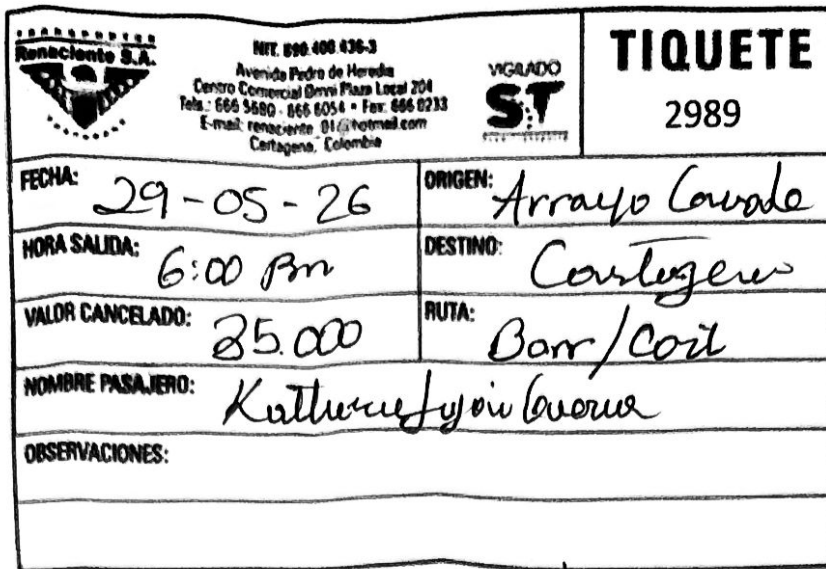 Renaciente S.A.
NIT. 890.400.436-3
Avenida Pedro de Heredia
Centro Comercial Omni Plaza Local 204
Tels.: 666 5680 - 666 6054 • Fax: 666 0233
E-mail: renaciente_01@hotmail.com
Cartagena, Colombia
VIGILADO
ST
TIQUETE
2989
FECHA: 29-05-26
ORIGEN: Arroyo
HORA SALIDA: 6:00 Pm
DESTINO: Cartagena
VALOR CANCELADO: 35.000
RUTA: Barr/
NOMBRE PASAJERO:
OBSERVACIONES: